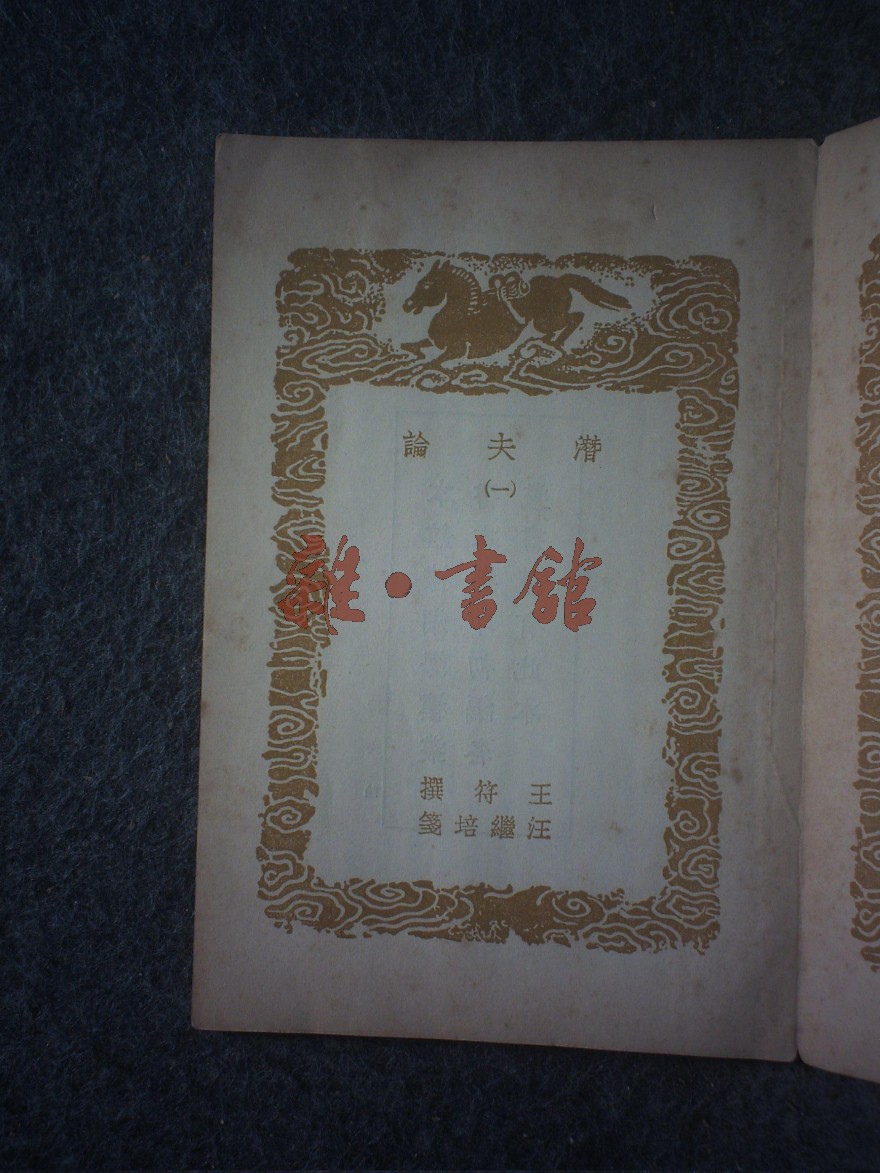 潛夫論
(一)
雜·書館
王符撰
汪繼培箋